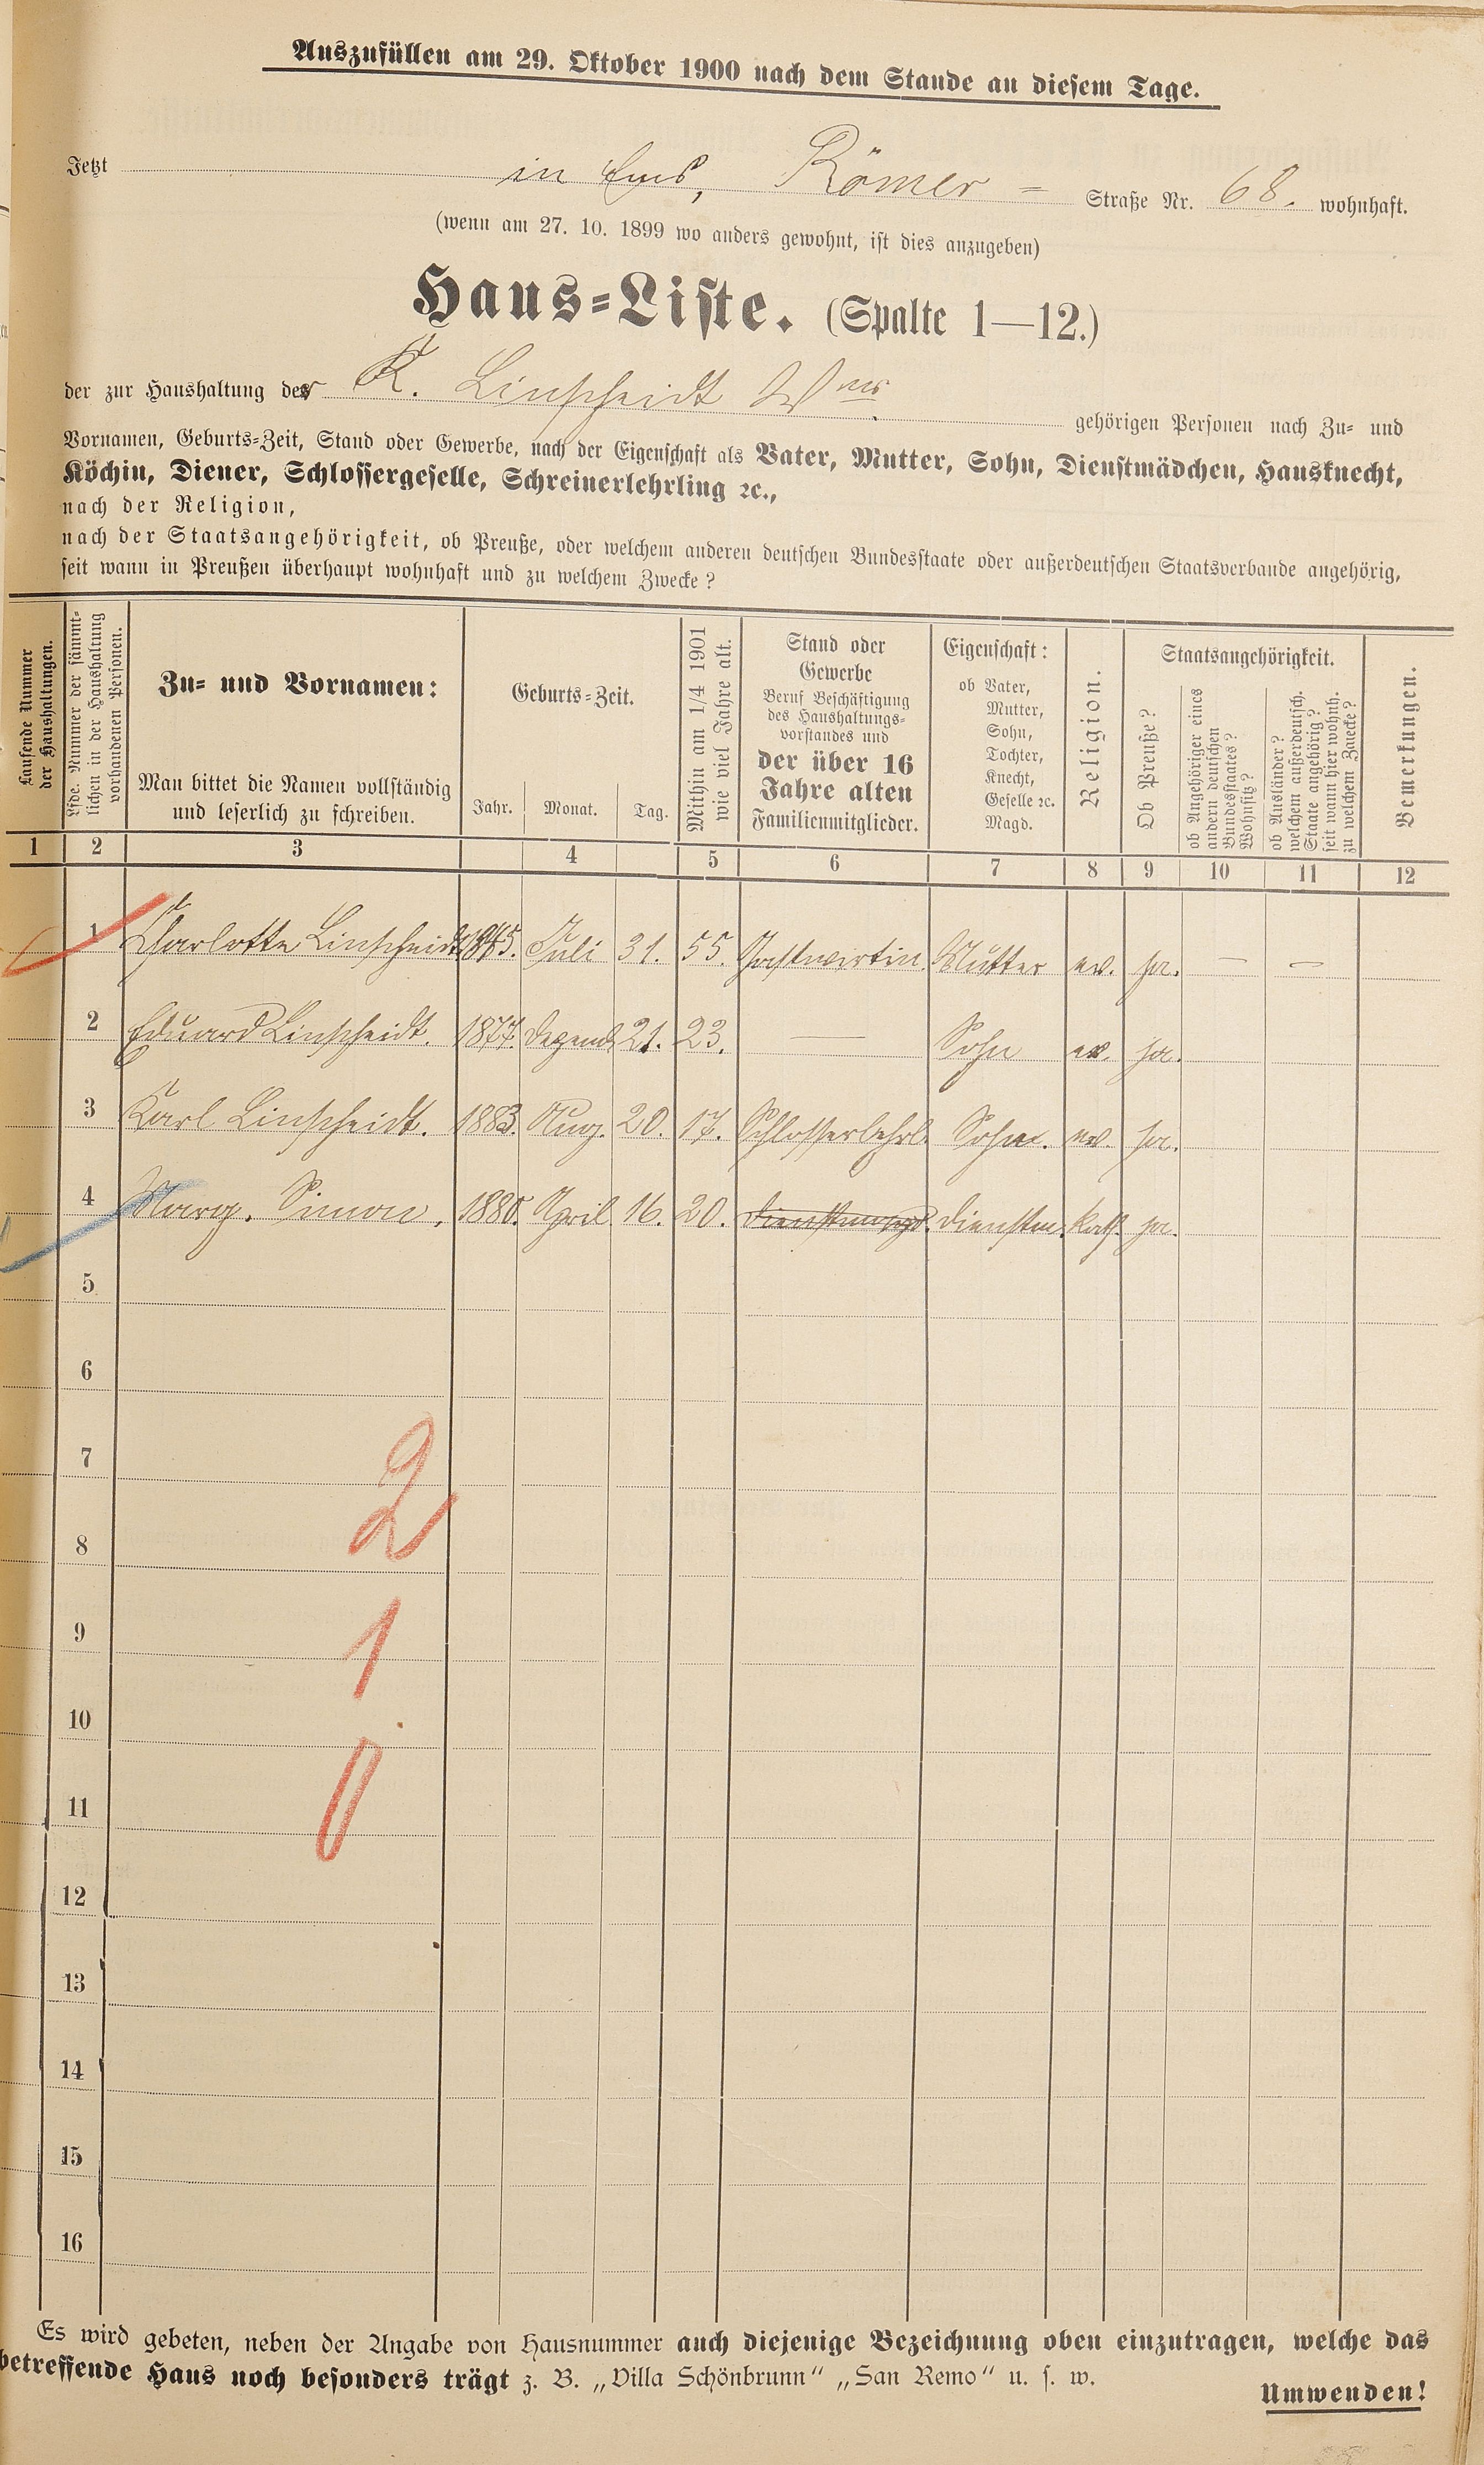 Auszufüllen am 29. Oktober 1900 nach dem Stande an diesem Tage.
Jetzt in Ems, Römer = Straße Nr. 68. wohnhaft.
(wenn am 27. 10. 1899 wo anders gewohnt, ist dies anzugeben)
Haus-Liste. (Spalte 1—12.)
der zur Haushaltung der K. Linscheidt Wwe. gehörigen Personen nach Zu- und
Vornamen, Geburts-Zeit, Stand oder Gewerbe, nach der Eigenschaft als Vater, Mutter, Sohn, Dienstmädchen, Hausknecht,
Köchin, Diener, Schlossergeselle, Schreinerlehrling ꝛc.,
nach der Religion,
nach der Staatsangehörigkeit, ob Preuße, oder welchem anderen deutschen Bundesstaate oder außerdeutschen Staatsverbande angehörig,
seit wann in Preußen überhaupt wohnhaft und zu welchem Zwecke?
Laufende Nummer
der Haushaltungen.
Lfde. Nummer der sämmt-
lichen in der Haushaltung
vorhandenen Personen.
Zu- und Vornamen:
Man bittet die Namen vollständig
und leserlich zu schreiben.
Geburts-Zeit.
Jahr. Monat. Tag.
Mithin am 1/4 1901
wie viel Jahre alt.
Stand oder
Gewerbe
Beruf Beschäftigung
des Haushaltungs-
vorstandes und
der über 16
Jahre alten
Familienmitglieder.
Eigenschaft:
ob Vater,
Mutter,
Sohn,
Tochter,
Knecht,
Geselle ꝛc.
Magd.
Religion.
Staatsangehörigkeit.
Ob Preuße?
ob Angehöriger eines
andern deutschen
Bundesstaates?
Wohnsitz?
ob Ausländer?
welchem außerdeutsch.
Staate angehörig?
seit wann hier wohnh.
zu welchem Zwecke?
Bemerkungen.
1 2 3 4 5 6 7 8 9 10 11 12
1 Charlotte Linscheidt 1845. Juli 31. 55. Gastwirtin. Mutter ev. ja. — —
2 Eduard Linscheidt. 1877. Dezemb. 21. 23. — Sohn ev. ja.
3 Karl Linscheidt. 1883. Aug. 20. 17. Schlosserlehrl. Sohn. ev. ja.
4 Marg. Simon. 1880. April 16. 20. Dienstmagd. Dienstm. kath. ja.
5
6
7
8
2
9
1
10
11
0
12
13
14
15
16
Es wird gebeten, neben der Angabe von Hausnummer auch diejenige Bezeichnung oben einzutragen, welche das
betreffende Haus noch besonders trägt z. B. „Villa Schönbrunn“ „San Remo“ u. s. w.
Umwenden!